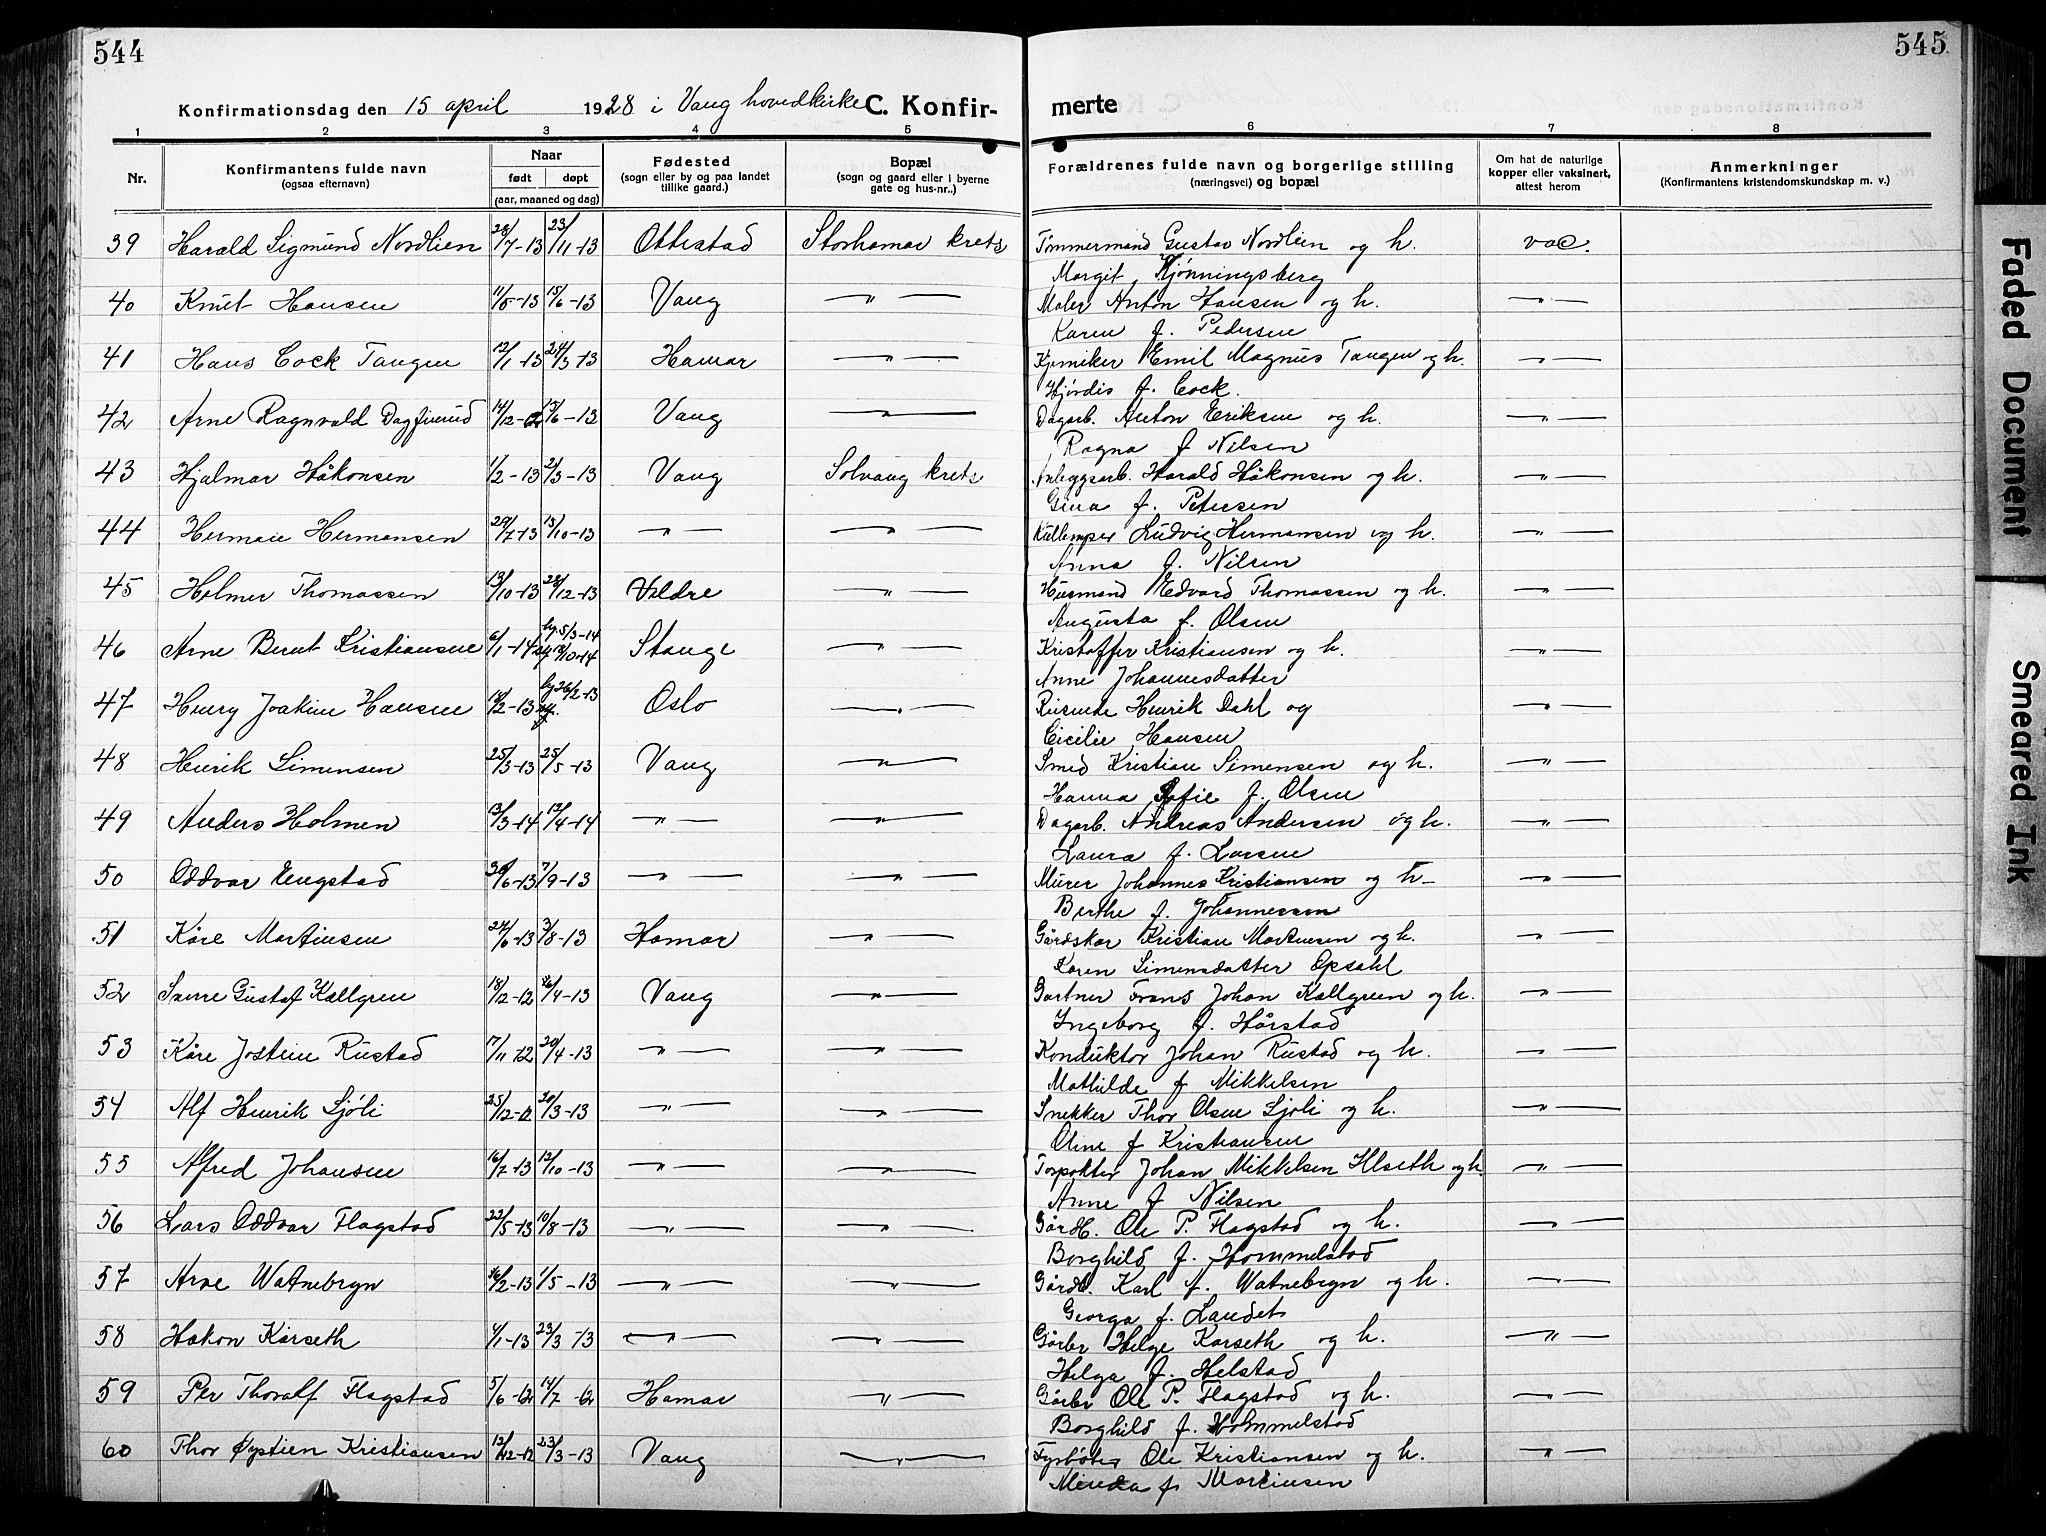 544
545
Konfirmationsdag den 15 april 1928 i Vang hovedkirke C. Konfirmerte
1 2 3 4 5 6 7 8
Nr.
Konfirmantens fulde navn
(ogsaa efternavn)
Naar
født døpt
(aar, maaned og dag)
Fødested
(sogn eller by og paa landet
tillike gaard.)
Bopæl
(sogn og gaard eller i byerne
gate og hus-nr..)
Forældrenes fulde navn og borgerlige stilling
(næringsvei) og bopæl
Om hat de naturlige
kopper eller vaksinert,
attest herom
Anmerkninger
(Konfirmantens kristendomskundskap m. v.)
39 Harald Sigmund Nordlien 28/7-13 23/11-13 Ottestad Storhamar krets Tømmermand Gustav Nordlien og h. vac.
Margit Kjønningsberg
40 Knut Hansen 11/5-13 15/6-13 Vang —„— Maler Anton Hansen og h. —„—
Karen f. Pedersen
41 Hans Cock Tangen 12/1-13 24/3-13 Hamar —„— Kjemiker Emil Magnus Tangen og h. —„—
Hjørdis f. Cock.
42 Arne Ragnvald Dagfinrud 14/12-12 15/6-13 Vang —„— Dagarb. Anton Eriksen og h. —„—
Ragna f Nilsen
43 Hjalmar Håkonsen 1/2-13 2/3-13 Vang Solvang krets Anleggsarb. Harald Håkonsen og h. —„—
Gina f. Petersen
44 Herman Hermansen 29/7-13 13/10-13 —„— —„— Ludvig Hermansen og h. —„—
Anna f. Nilsen
45 Holmer Thomassen 13/10-13 28/12-13 Veldre —„— Husmand Edvard Thomassen og h. —„—
Augusta f. Olsen
46 Arne Bernt Kristiansen 6/1-14 hj. 5/3-14 Stange —„— Kristoffer Kristiansen og h. —„—
Anne Johannesdatter
47 Henry Joakim Hansen 18/2-13 hj 26/2-13 Oslo —„— Reisende Henrik Dahl og —„—
Cicilie Hansen
48 Henrik Simensen 25/3-13 25/5-13 Vang —„— Smed Kristian Simensen og h. —„—
Hanna Sofie f. Olsen
49 Anders Holmen 13/3-14 13/4-14 —„— —„— Dagarb. Andreas Andersen og h. —„—
Laura f. Larsen
50 Oddvar Engstad 30/6-13 7/9-13 —„— —„— Murer Johannes Kristiansen og h —„—
Berthe f. Johannessen
51 Kåre Martinsen 24/6-13 3/8-13 Hamar —„— Gårdskar Kristian Martinsen og h. —„—
Karen Simensdatter Opsahl
52 Sverre Gustaf Källgren 18/12-12 26/4-13 Vang —„— Gartner Frans Johan Källgren og h. —„—
Ingeborg f. Hårstad
53 Kåre Jostein Rustad 17/11-12 20/4-13 —„— —„— Konduktør Johan Rustad og h. —„—
Mathilde f Mikkelsen
54 Alf Henrik Sjøli 25/12-12 20/3-13 —„— —„— Snekker Thor Olsen Sjøli og h. —„—
Oline f Kristiansen
55 Alfred Johansen 16/7-13 12/10-13 —„— —„— Johan Mikkelsen Ilseth og h. —„—
Anne f Nilsen
56 Lars Oddvar Flagstad 22/5-13 10/8-13 —„— —„— Ole P. Flagstad og h. —„—
Borghild f. Hommelstad
57 Arve Watnebryn 16/2-13 1/5-13 —„— —„— Karl A. Watnebryn og h. —„—
Georga f. Landet
58 Håkon Kårseth 4/1-13 23/3-13 —„— —„— Gårbr Helge Kårseth og h. —„—
Helga f. Helstad
59 Per Thoralf Flagstad 5/6-12 14/7-12 Hamar „ Gårbr Ole P. Flagstad og h. —„—
Borghild f. Hommelstad
60 Thor Øystien Kristiansen 12/12-12 23/3-13 Vang —„— Fyrbøter Ole Kristiansen og h. —„—
f. Martinsen
Faded Document
Smeared Ink